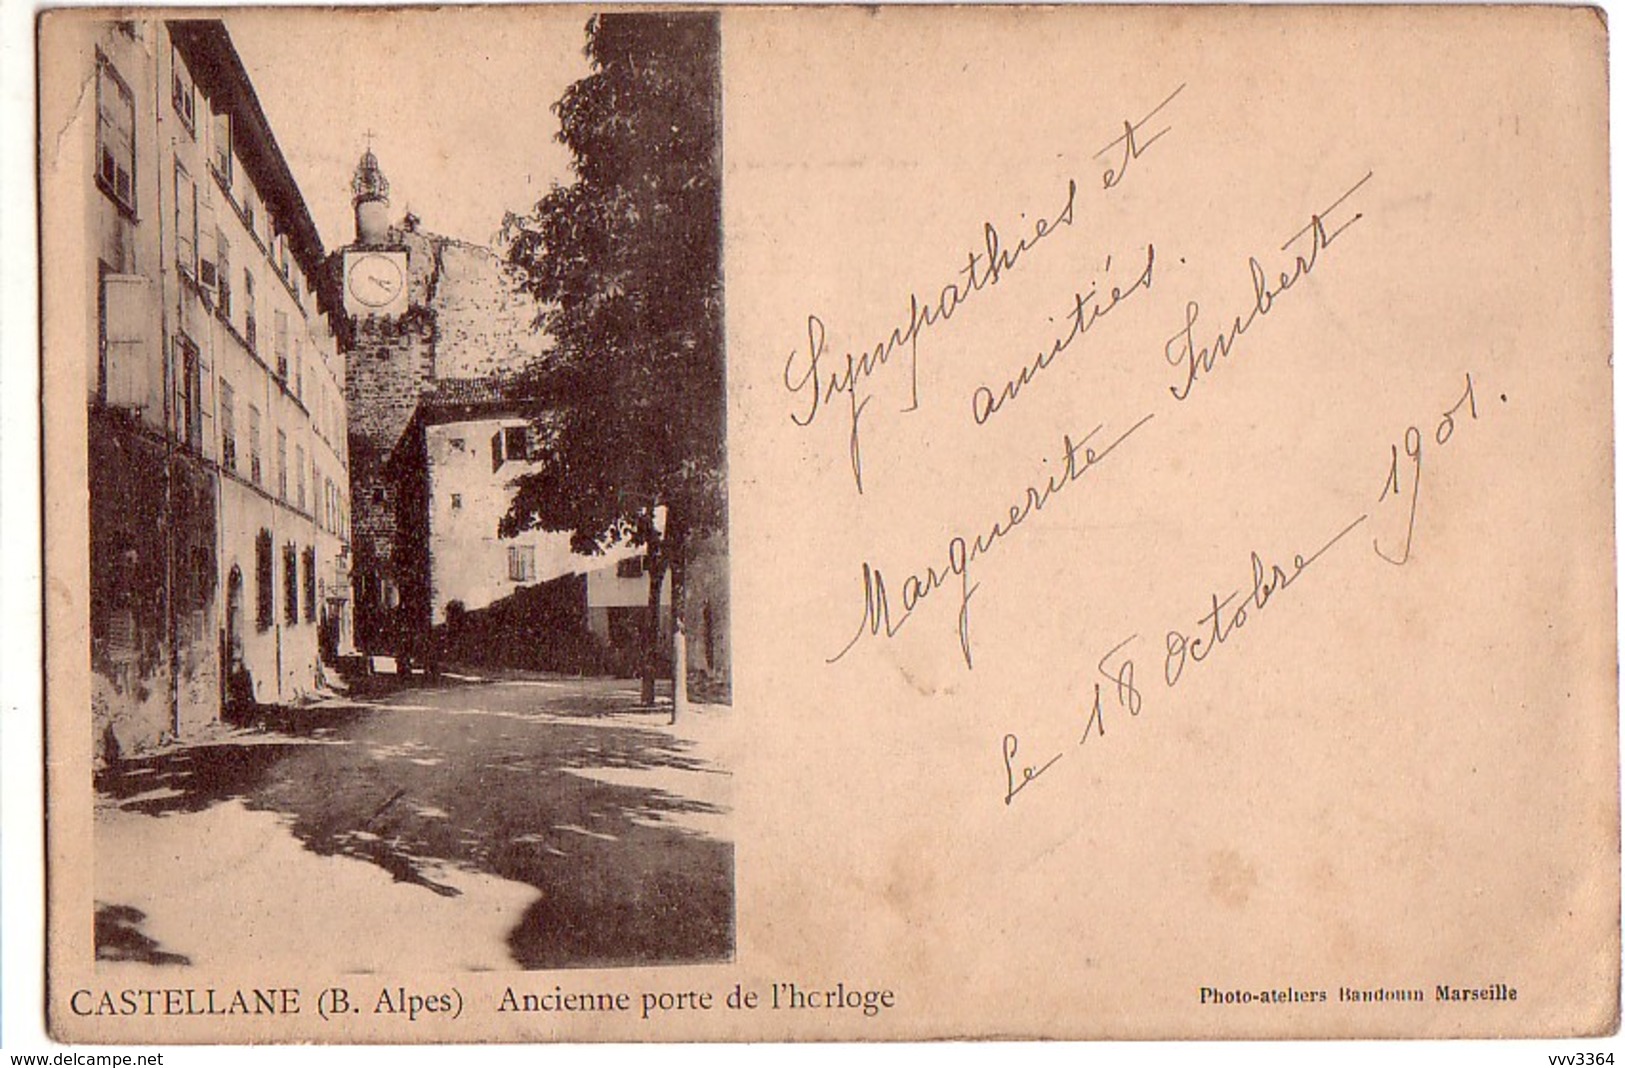 Sympathies et
amitiés.
Marguerite Imbert
Le 18 Octobre 1901.
CASTELLANE (B. Alpes) Ancienne porte de l'horloge
Photo-ateliers Baudouin Marseille
www.delcampe.net
vvv3364